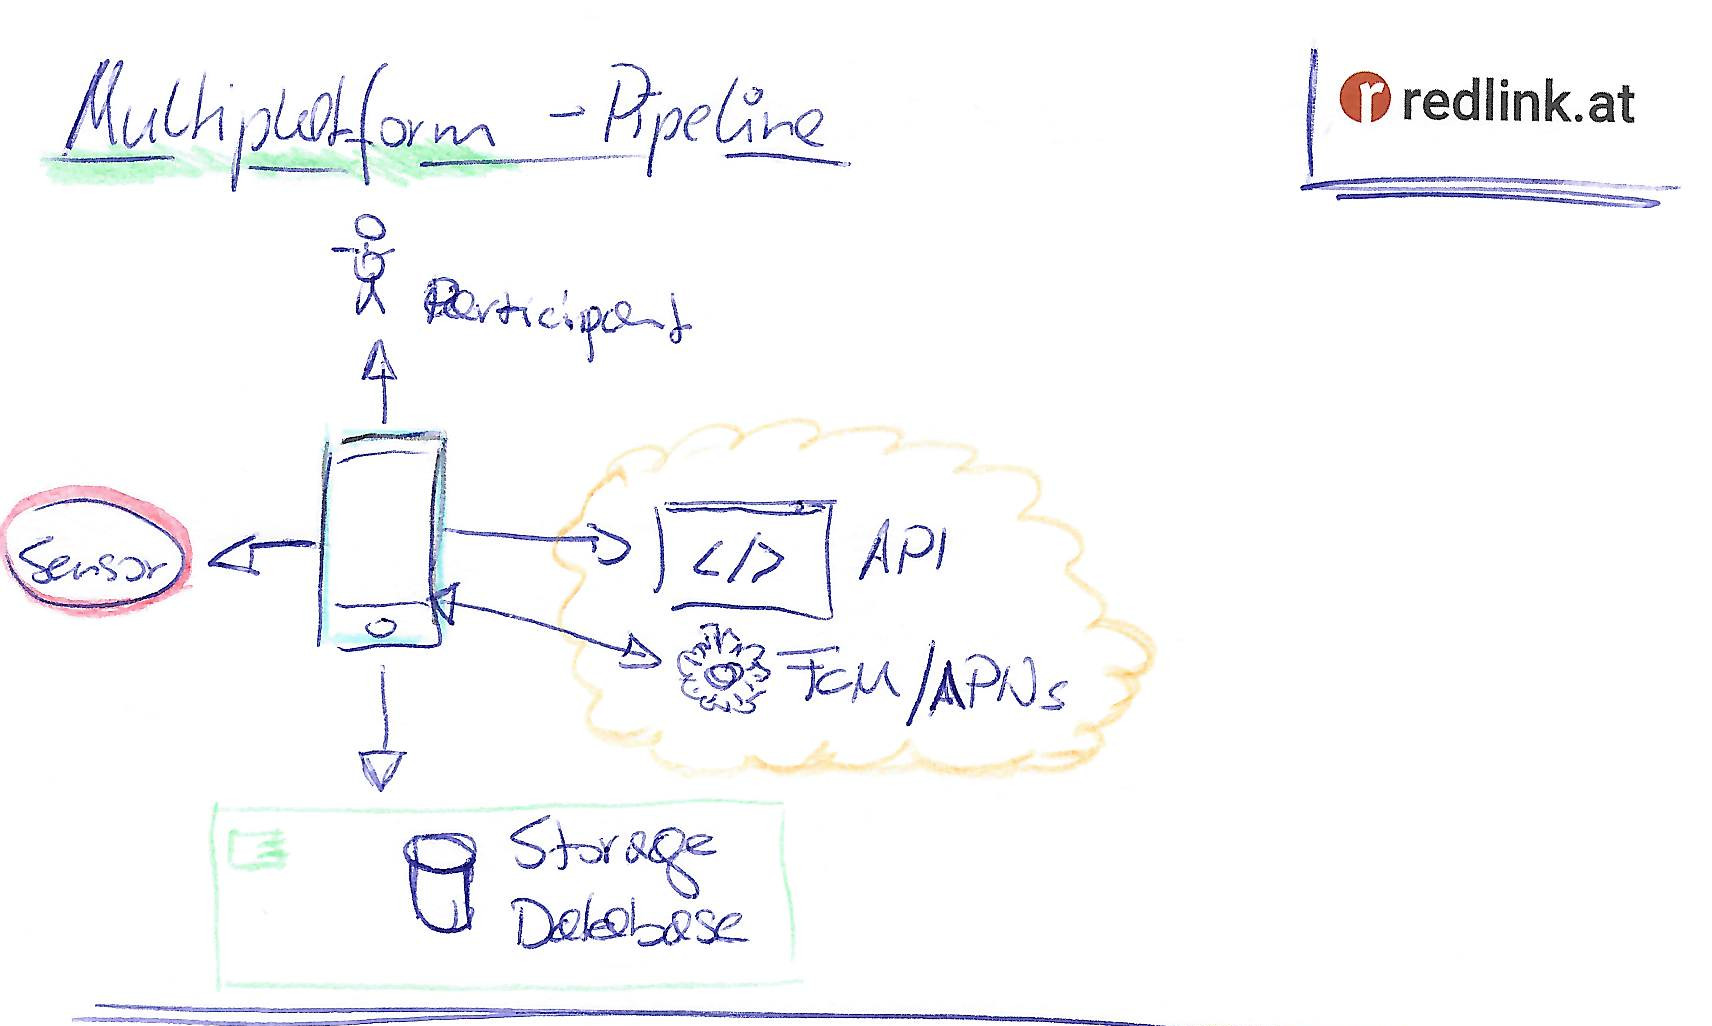 Multiplatform - Pipeline
redlink.at
Participant
Sensor
</> API
FCM/APNs
Storage
Database